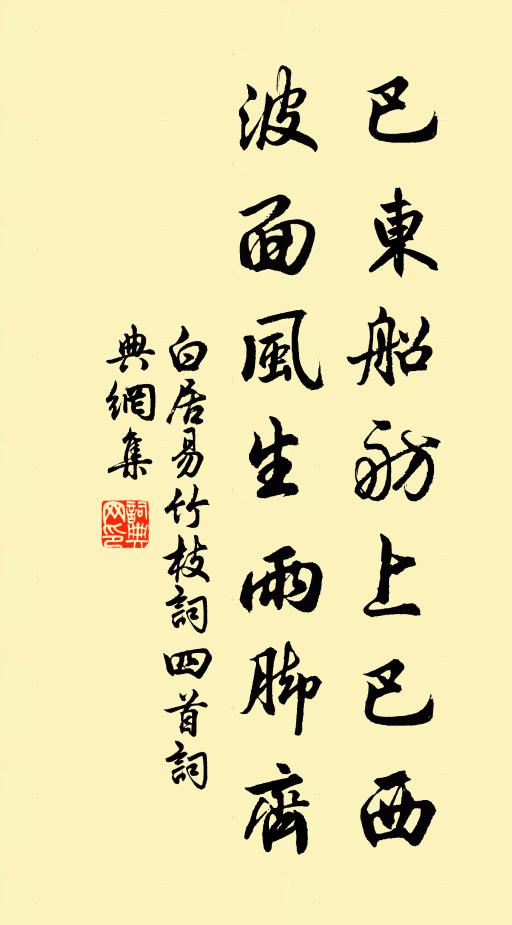 巴東船舫上巴西
波面風生雨腳齊
白居易竹枝詞四首詞
典網集
詞典
网印